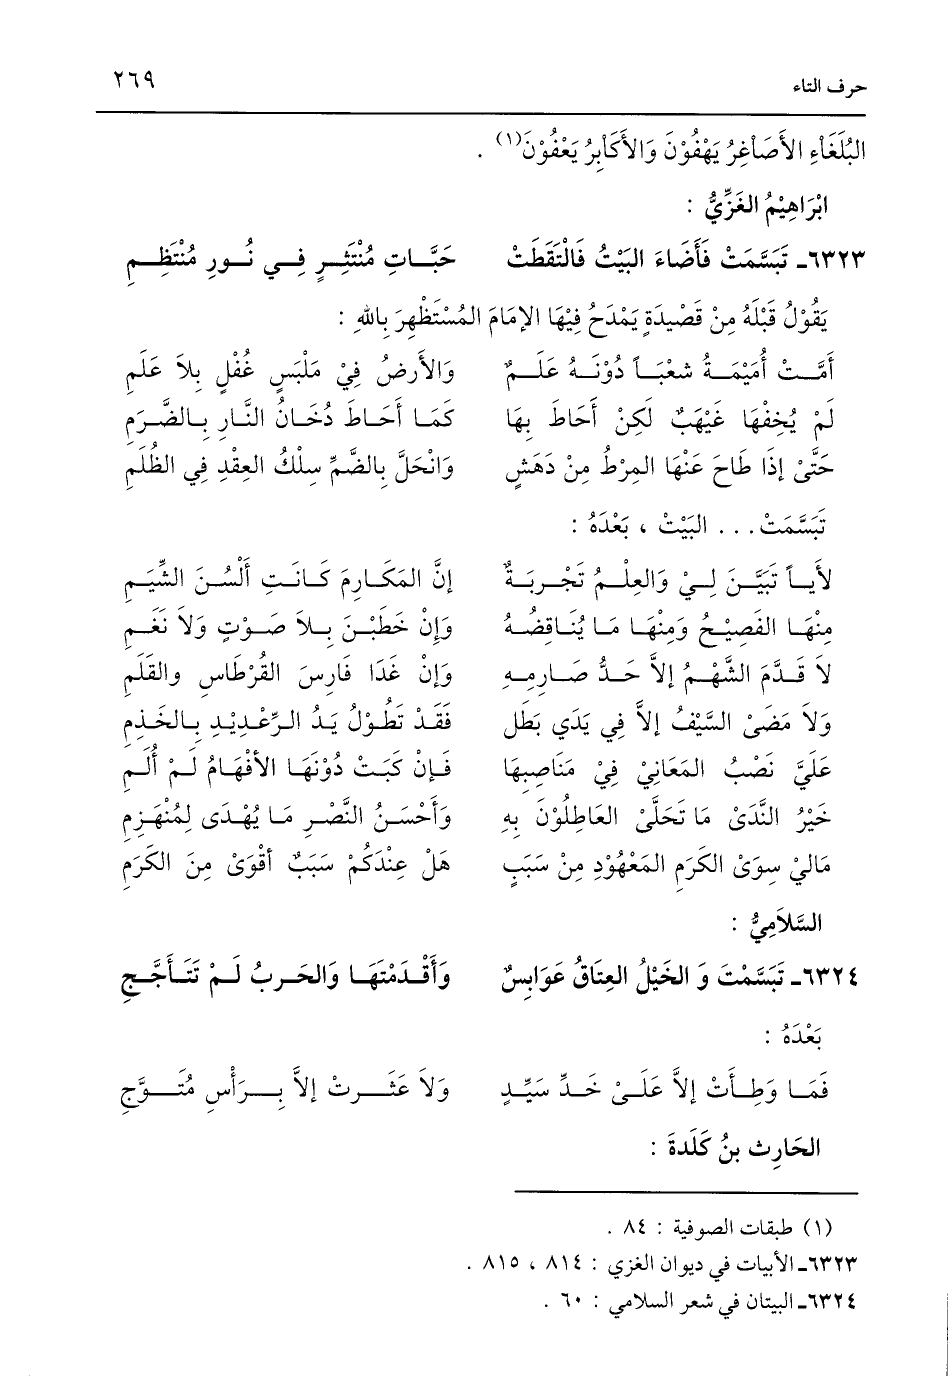 حرف التاء ٢٦٩
البُلَغَاءِ الأَصَاغِرُ يَهْفُوْنَ وَالأَكَابِرُ يَعْفُوْنَ(١) .
ابْرَاهِيْمُ الغَزِّيُّ :
٦٣٢٣ـ تَبَسَّمَتْ فَأَضَاءَ البَيْتُ فَالْتَقَطَتْ حَبَّاتِ مُنْتَثِرٍ فِي نُورِ مُنْتَظِمِ
يَقُوْلُ قَبْلَهُ مِنْ قَصِيْدَةٍ يَمْدَحُ فِيْهَا الإمَامَ المُسْتَظْهِرَ بِاللهِ :
أَمَّتْ أُمَيْمَةُ شعْبَاً دُوْنَهُ عَلَمٌ وَالأَرضُ فِيْ مَلْبَسٍ غُفْلٍ بِلاَ عَلَمِ
لَمْ يُخِفْهَا غَيْهَبٌ لَكِنْ أَحَاطَ بِهَا كَمَا أَحَاطَ دُخَانُ النَّارِ بِالضَّرَمِ
حَتَّىْ إِذَا طَاحَ عَنْهَا المِرْطُ مِنْ دَهَشٍ وَانْحَلَّ بِالضَّمِّ سِلْكُ العِقْدِ فِي الظُلَمِ
تَبَسَّمَتْ . . . البَيْتْ ، بَعْدَهُ :
لأَيَاً تَبَيَّنَ لِيْ وَالعِلْمُ تَجْرِبَةٌ إنَّ المَكَارِمَ كَانَتِ أَلْسُنَ الشِّيَمِ
مِنْهَا الفَصِيْحُ وَمِنْهَا مَا يُنَاقِضُهُ وَإِنْ خَطَبْنَ بِلاَ صَوْتٍ وَلاَ نَغَمِ
لاَ قَدَّمَ الشَّهْمُ إلاَّ حَدُّ صَارِمِهِ وَإنْ غَدَا فَارِسَ القُرْطَاسِ والقَلَمِ
وَلاَ مَضَىْ السَّيْفُ إلاَّ فِي يَدَي بَطَلٍ فَقَدْ تَطُوْلُ يَدُ الرِّعْدِيْدِ بِالخَذِمِ
عَلَيَّ نَصْبُ المَعَانِيْ فِيْ مَنَاصِبِهَا فَإِنْ كَبَتْ دُوْنَهَا الأَفْهَامُ لَمْ أُلَمِ
خَيْرُ النَّدَىْ مَا تَحَلَّىْ العَاطِلُوْنَ بِهِ وَأَحْسَنُ النَّصْرِ مَا يُهْدَى لِمُنْهَزِمِ
مَالِيْ سِوَىْ الكَرَمِ المَعْهُوْدِ مِنْ سَبَبٍ هَلْ عِنْدَكُمْ سَبَبٌ أَقْوَىْ مِنَ الكَرَمِ
السَّلاَمِيُّ :
٦٣٢٤ـ تَبَسَّمْتَ وَ الخَيْلُ العِتَاقُ عَوَابِسٌ وَأَقْدَمْتَهَا وَالحَربُ لَمْ تَتَأَجَّجِ
بَعْدَهُ :
فَمَا وَطِأَتْ إلاَّ عَلَىْ خَدِّ سَيِّدٍ وَلاَ عَثَرتْ إلاَّ بِرَأْسِ مُتَوَّجِ
الحَارِث بنُ كَلَدةَ :
(١) طبقات الصوفية : ٨٤ .
٦٣٢٣ـ الأبيات في ديوان الغزي : ٨١٤ ، ٨١٥ .
٦٣٢٤ـ البيتان في شعر السلامي : ٦٠ .